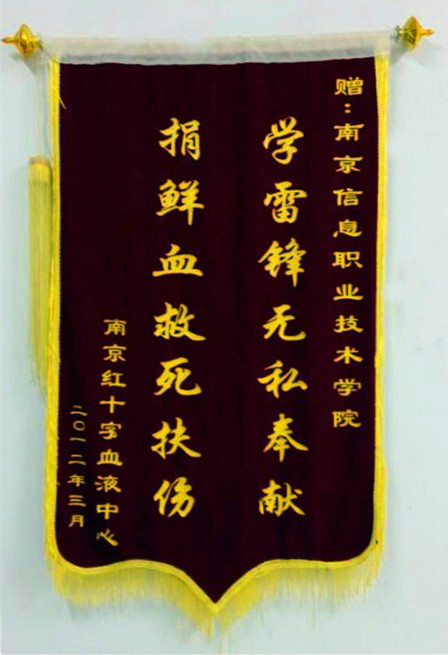 赠:南京信息职业技术学院
学雷锋无私奉献
捐鲜血救死扶伤
南京红十字血液中心
二〇一二年三月